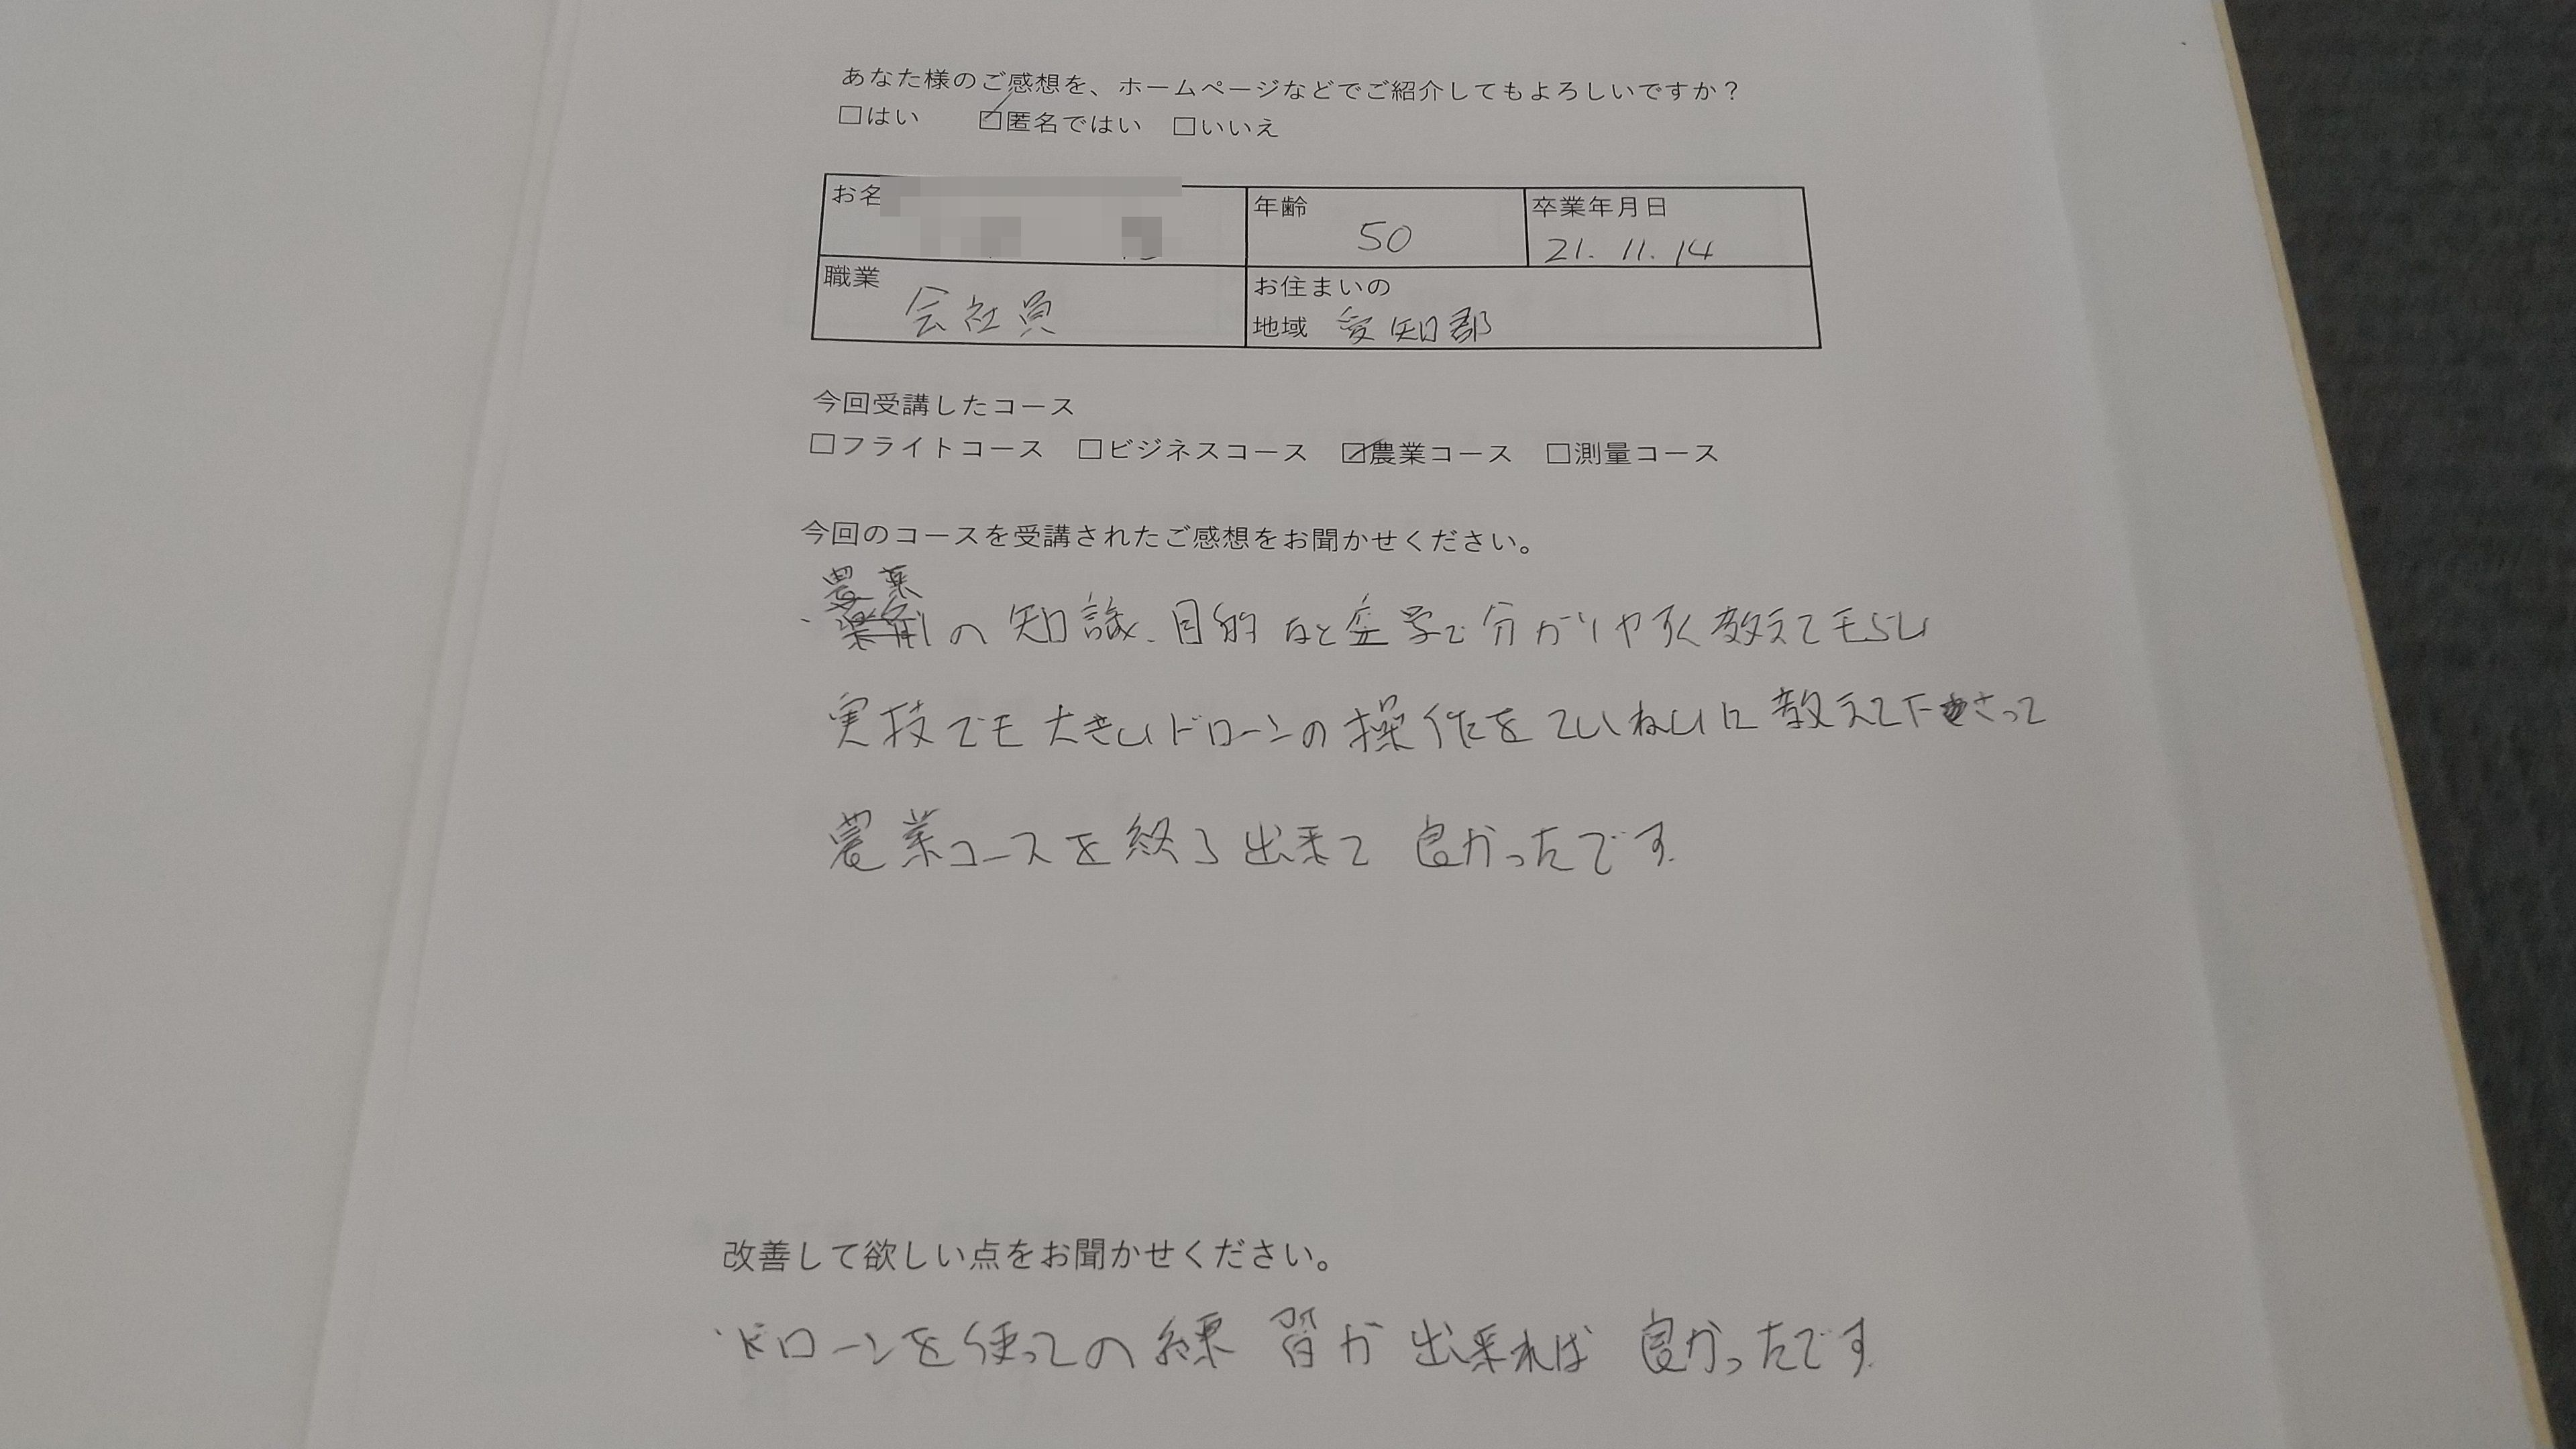 あなた様のご感想を、ホームページなどでご紹介してもよろしいですか？
□はい ☑匿名ではい □いいえ
お名
年齢 50
卒業年月日 21. 11. 14
職業 会社員
お住まいの
地域 愛知郡
今回受講したコース
□フライトコース □ビジネスコース ☑農業コース □測量コース
今回のコースを受講されたご感想をお聞かせください。
農薬
・薬剤の知識、目的など座学で分かりやすく教えてもらい
実技でも大きいドローンの操作をていねいに教えて下さって
農業コースを終了出来て良かったです。
改善して欲しい点をお聞かせください。
・ドローンを使っての練習が出来れば良かったです。